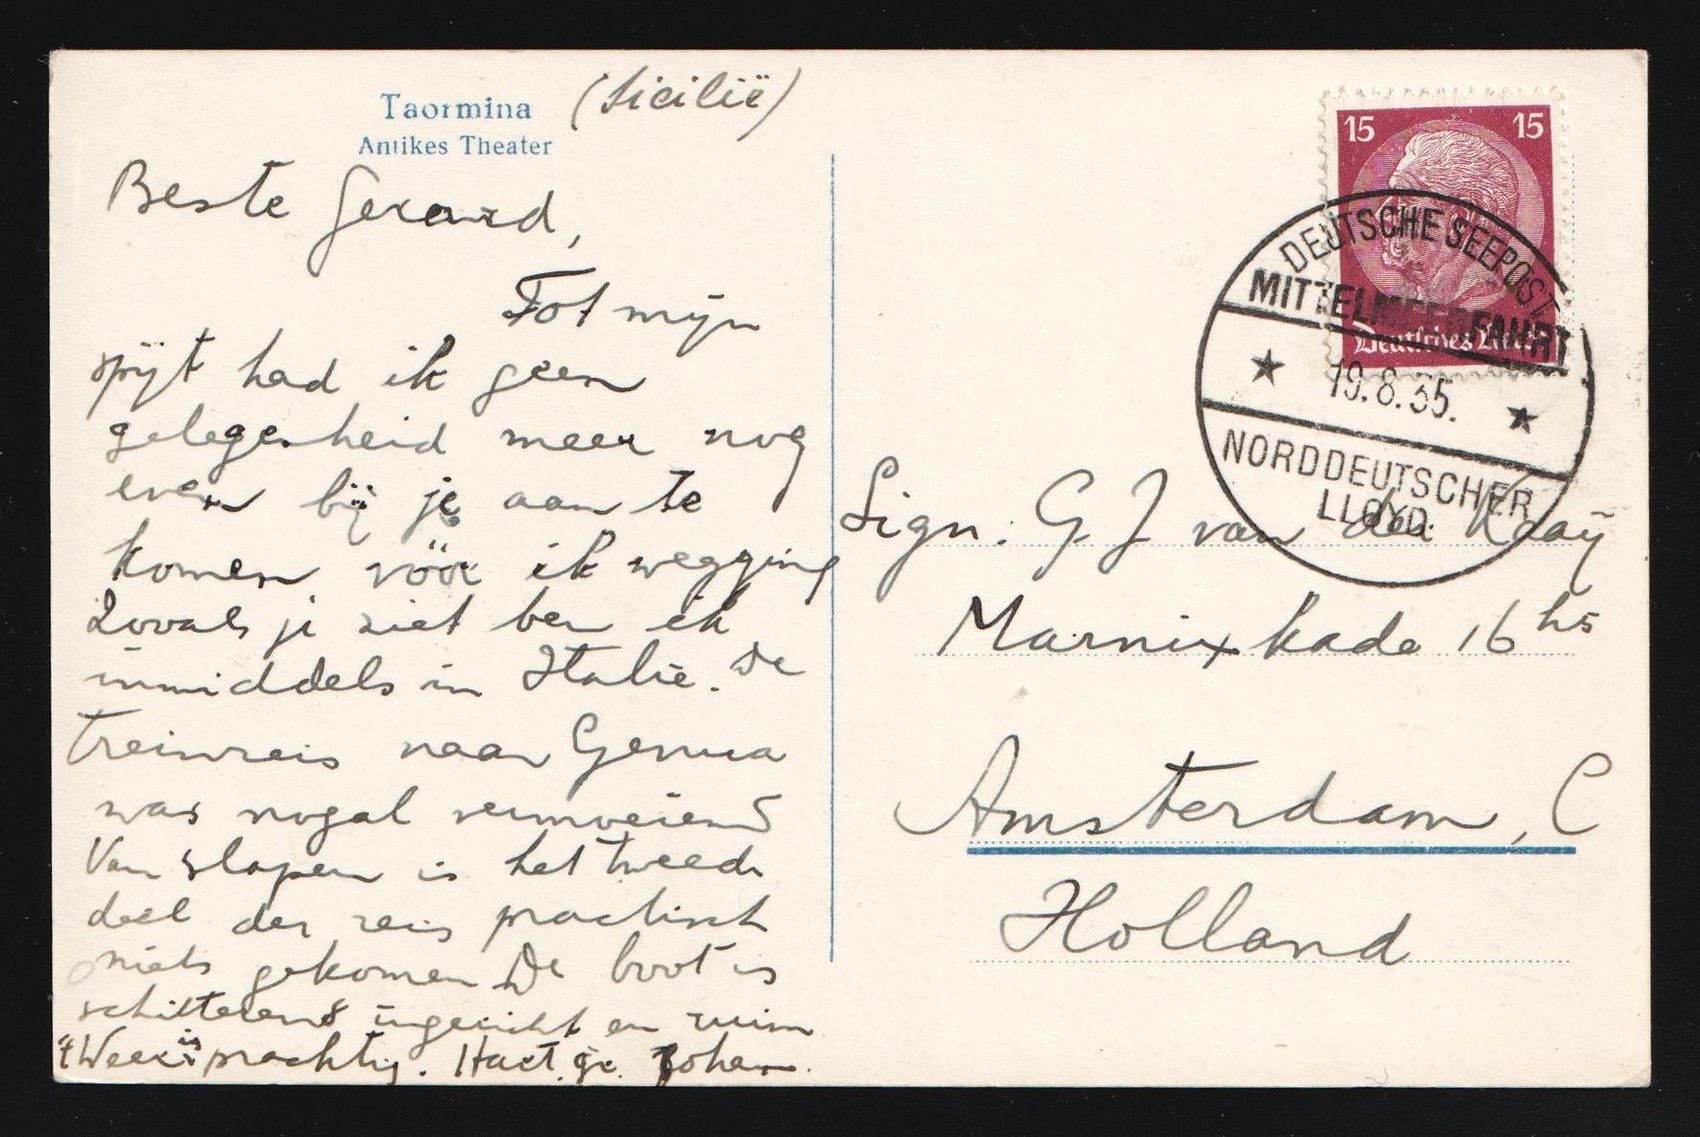 Taormina (Sicilië)
Antikes Theater
Beste Gerard,
Tot mijn
spijt had ik geen
gelegenheid meer nog
even bij je aan te
komen vóór ik wegging
Zooals je ziet ben ik
inmiddels in Italië. De
treinreis naar Genua
was nogal vermoeiend
Van slapen is het tweede
deel der reis practisch
niets gekomen De boot is
schitterend ingericht en ruim
't Weer is prachtig. Hart. gr.
15 15
Deutsches Reich
DEUTSCHE SEEPOST
MITTELMEERFAHRT
19.8.35.
NORDDEUTSCHER
LLOYD
Sign. G J van der Kaaij
Marnixkade 16 hs
Amsterdam, C
Holland